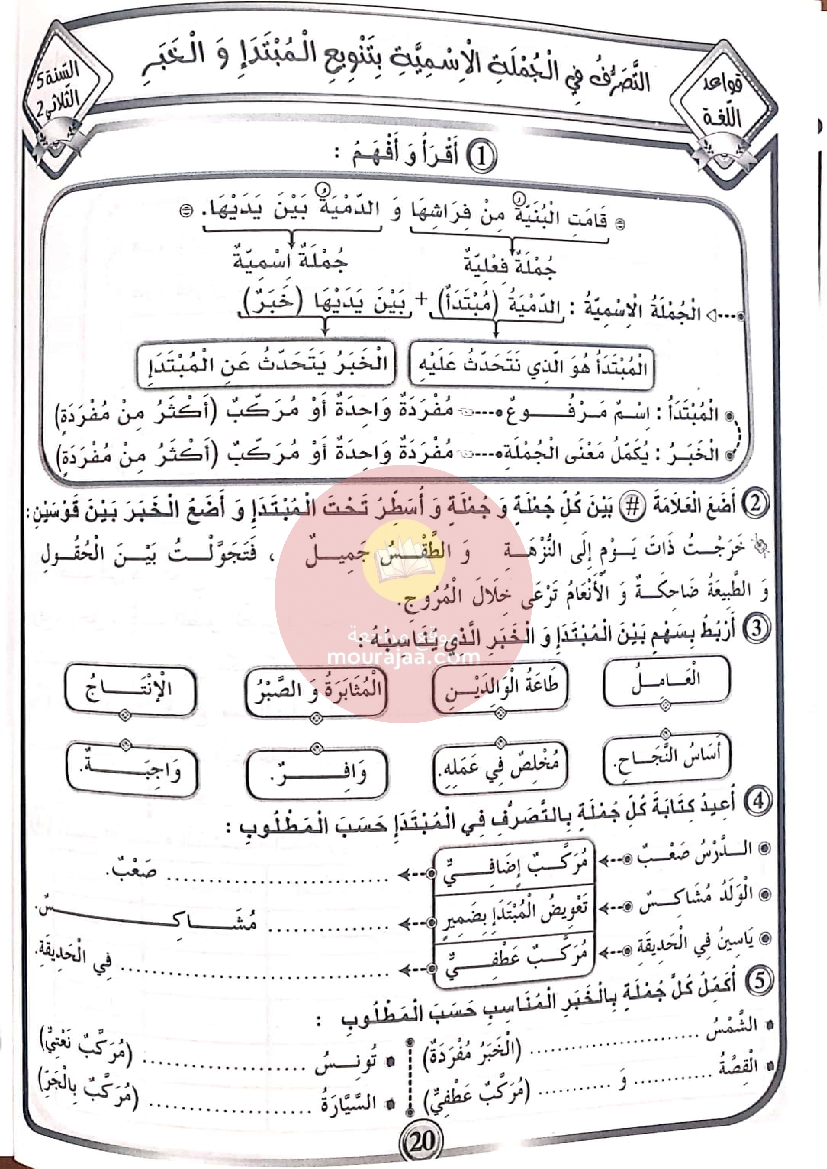 قواعد اللّغة
التَّصَرُّفُ فِي الْجُمْلَةِ الْاِسْمِيَّةِ بِتَنْوِيعِ الْمُبْتَدَإِ وَ الْخَبَرِ
السّنة 5
الثّلاثي 2
1 أَقْرَأُ وَ أَفْهَمُ :
= قَامَتِ الْبُنَيَّةُ مِنْ فِرَاشِهَا وَ الدُّمْيَةُ بَيْنَ يَدَيْهَا. =
جُمْلَةٌ فِعْلِيَّةٌ جُمْلَةٌ اِسْمِيَّةٌ
الْجُمْلَةُ الْاِسْمِيَّةُ : الدُّمْيَةُ (مُبْتَدَأٌ) + بَيْنَ يَدَيْهَا (خَبَرٌ)
الْمُبْتَدَأُ هُوَ الَّذِي نَتَحَدَّثُ عَلَيْهِ الْخَبَرُ يَتَحَدَّثُ عَنِ الْمُبْتَدَإِ
الْمُبْتَدَأُ : اِسْمٌ مَرْفُوعٌ مُفْرَدَةٌ وَاحِدَةٌ أَوْ مُرَكَّبٌ (أَكْثَرُ مِنْ مُفْرَدَةٍ)
الْخَبَرُ : يُكَمِّلُ مَعْنَى الْجُمْلَةِ مُفْرَدَةٌ وَاحِدَةٌ أَوْ مُرَكَّبٌ (أَكْثَرُ مِنْ مُفْرَدَةٍ)
2 أَضَعُ الْعَلَامَةَ # بَيْنَ كُلِّ جُمْلَةٍ وَ جُمْلَةٍ وَ أُسَطِّرُ تَحْتَ الْمُبْتَدَإِ وَ أَضَعُ الْخَبَرَ بَيْنَ قَوْسَيْنِ :
خَرَجْتُ ذَاتَ يَوْمٍ إِلَى النُّزْهَةِ وَ الطَّقْسُ جَمِيلٌ ، فَتَجَوَّلْتُ بَيْنَ الْحُقُولِ
وَ الطَّبِيعَةُ ضَاحِكَةٌ وَ الْأَنْعَامُ تَرْعَى خِلَالَ الْمُرُوجِ.
موقع مراجعة
mourajaa.com
3 أَرْبِطُ بِسَهْمٍ بَيْنَ الْمُبْتَدَإِ وَ الْخَبَرِ الَّذِي يُنَاسِبُهُ :
الْعَامِلُ طَاعَةُ الْوَالِدَيْنِ الْمُثَابَرَةُ وَ الصَّبْرُ الْإِنْتَاجُ
أَسَاسُ النَّجَاحِ. مُخْلِصٌ فِي عَمَلِهِ. وَافِرٌ. وَاجِبَةٌ.
4 أُعِيدُ كِتَابَةَ كُلِّ جُمْلَةٍ بِالتَّصَرُّفِ فِي الْمُبْتَدَإِ حَسَبَ الْمَطْلُوبِ :
الدَّرْسُ صَعْبٌ مُرَكَّبٌ إِضَافِيٌّ .......................... صَعْبٌ.
الْوَلَدُ مُشَاكِسٌ تَعْوِيضُ الْمُبْتَدَإِ بِضَمِيرٍ .............. مُشَاكِسٌ.
يَاسِينُ فِي الْحَدِيقَةِ مُرَكَّبٌ عَطْفِيٌّ .......................... فِي الْحَدِيقَةِ.
5 أُكْمِلُ كُلَّ جُمْلَةٍ بِالْخَبَرِ الْمُنَاسِبِ حَسَبَ الْمَطْلُوبِ :
الشَّمْسُ .................... (الْخَبَرُ مُفْرَدَةٌ) تُونِسُ .................... (مُرَكَّبٌ نَعْتِيٌّ)
الْقِصَّةُ .......... وَ .......... (مُرَكَّبٌ عَطْفِيٌّ) السَّيَّارَةُ .................... (مُرَكَّبٌ بِالْجَرِّ)
20